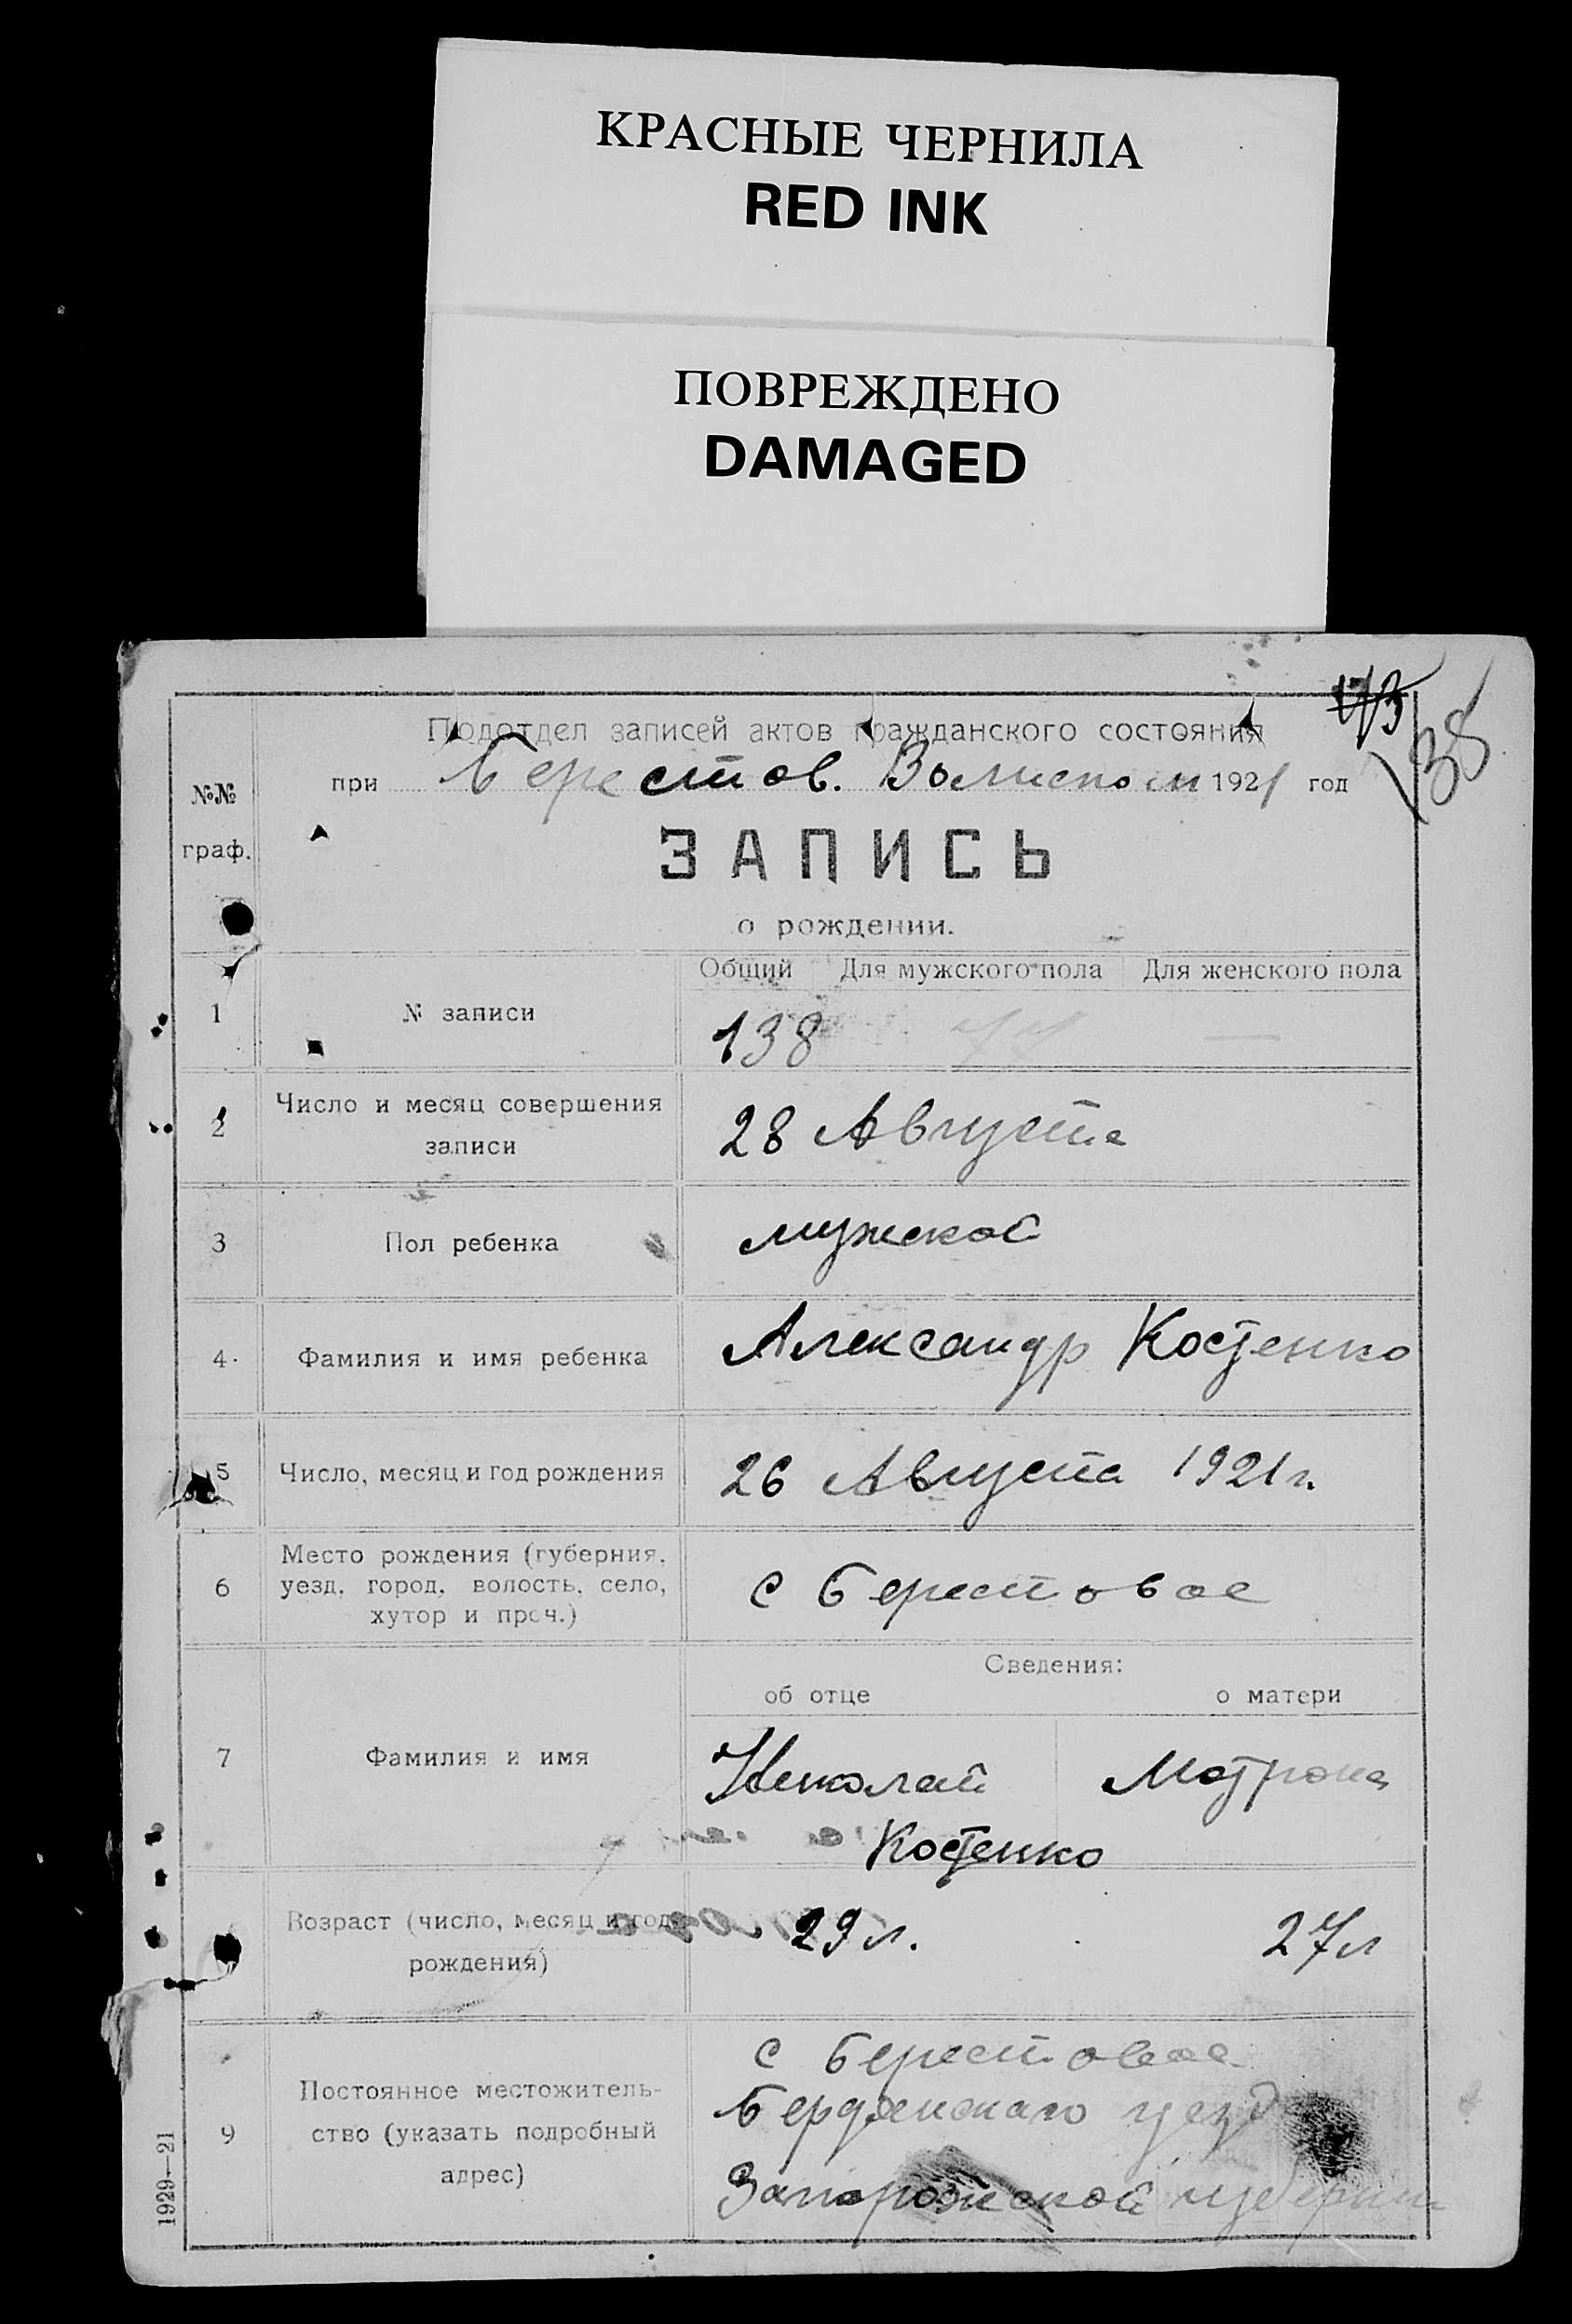 КРАСНЫЕ ЧЕРНИЛА
RED INK
ПОВРЕЖДЕНО
DAMAGED
138
Подотдел записей актов гражданского состояния
при Берестов. Волиспом 1921 год
№№ граф.
ЗАПИСЬ
о рождении.
Общий Для мужского пола Для женского пола
1 № записи 138 —
2 Число и месяц совершения записи 28 Августа
3 Пол ребенка мужской
4. Фамилия и имя ребенка Александр Костенко
5 Число, месяц и год рождения 26 Августа 1921 г.
6 Место рождения (губерния, уезд, город, волость, село, хутор и проч.) с Берестовое
Сведения:
об отце о матери
7 Фамилия и имя Николай Матрона
Костенко
Возраст (число, месяц и год рождения) 29 л. 27 л
9 Постоянное местожительство (указать подробный адрес) с Берестовое
Бердянскаго уезд
Запорожской губернии
1929—21